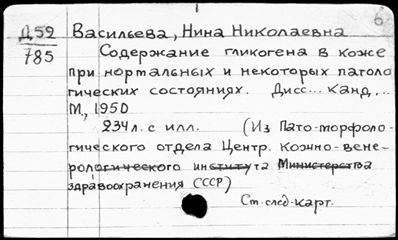 6
Д 59 Васильева, Нина Николаевна
785 Содержание гликогена в коже
при нормальных и некоторых патоло
гических состояниях. Дисс... канд...
М., 1950
234 л. с илл. (Из Пато-морфоло-
гического отдела Центр. кожно-вене-
рологического института Министерства
здравоохранения СССР)
См. след. карт.